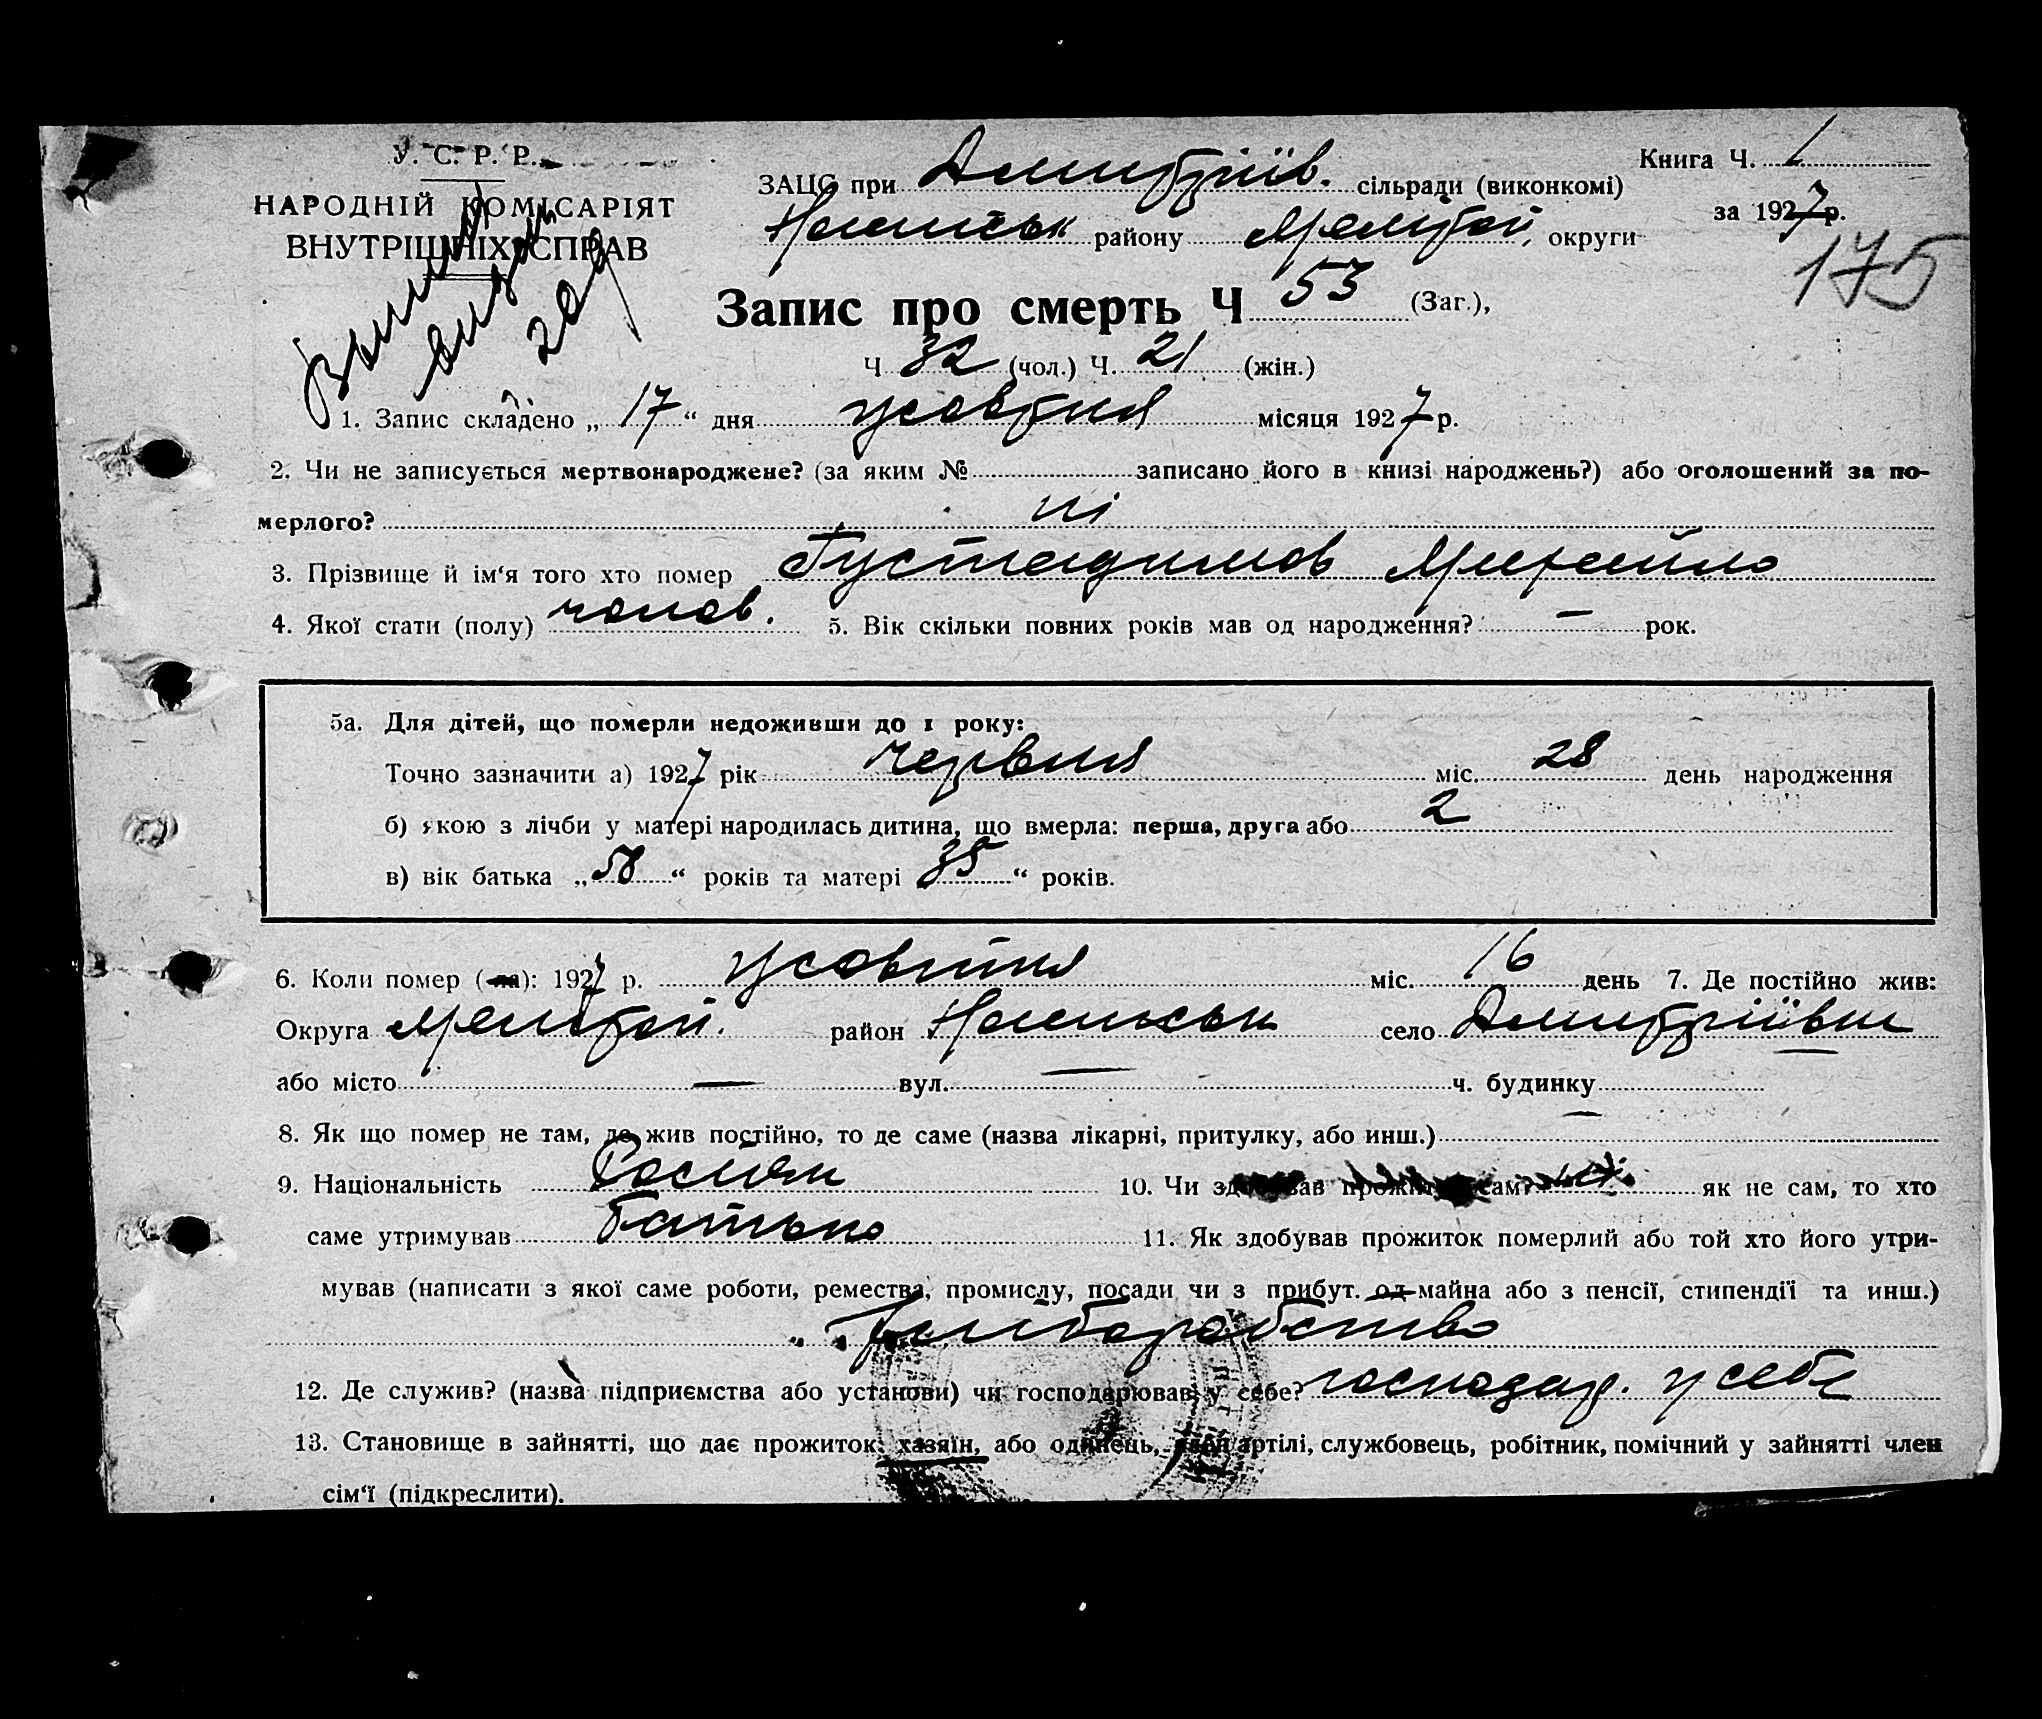 У. С. Р. Р.
НАРОДНІЙ КОМІСАРІЯТ
ВНУТРІШНІХ СПРАВ
ЗАЦС при Дмитріїв. сільради (виконкомі)
району Мелітоп. округи
Книга Ч. 1
за 1927 р.
175
Запис про смерть Ч 53 (Заг.),
Ч 32 (чол.) Ч. 21 (жін.)
1. Запис складено „ 17 “ дня жовтня місяця 1927 р.
2. Чи не записується мертвонароджене? (за яким № записано його в книзі народжень?) або оголошений за по-
мерлого? ні
3. Прізвище й ім‘я того хто помер Михайло
4. Якої стати (полу) чолов. 5. Вік скільки повних років мав од народження? — рок.
5а. Для дітей, що померли недоживши до 1 року:
Точно зазначити а) 1927 рік червня міс. 28 день народження
б) якою з лічби у матері народилась дитина, що вмерла: перша, друга або 2
в) вік батька „ “ років та матері 35 “ років.
6. Коли помер (ла): 1927 р. жовтня міс. 16 день 7. Де постійно жив:
Округа Мелітоп. район село Дмитріївка
або місто — вул. — ч. будинку —
8. Як що помер не там, де жив постійно, то де саме (назва лікарні, притулку, або инш.)
9. Національність Росіян 10. Чи здобував прожиток сам? як не сам, то хто
саме утримував батько 11. Як здобував прожиток померлий або той хто його утри-
мував (написати з якої саме роботи, ремества, промислу, посади чи з прибут. од майна або з пенсії, стипендії та инш.)
Хліборобство
12. Де служив? (назва підприємства або установи) чи господарював у себе? господар. у себе
13. Становище в зайнятті, що дає прожиток: хазяїн, або одинець, член артілі, службовець, робітник, помічний у зайнятті член
сім‘ї (підкреслити).